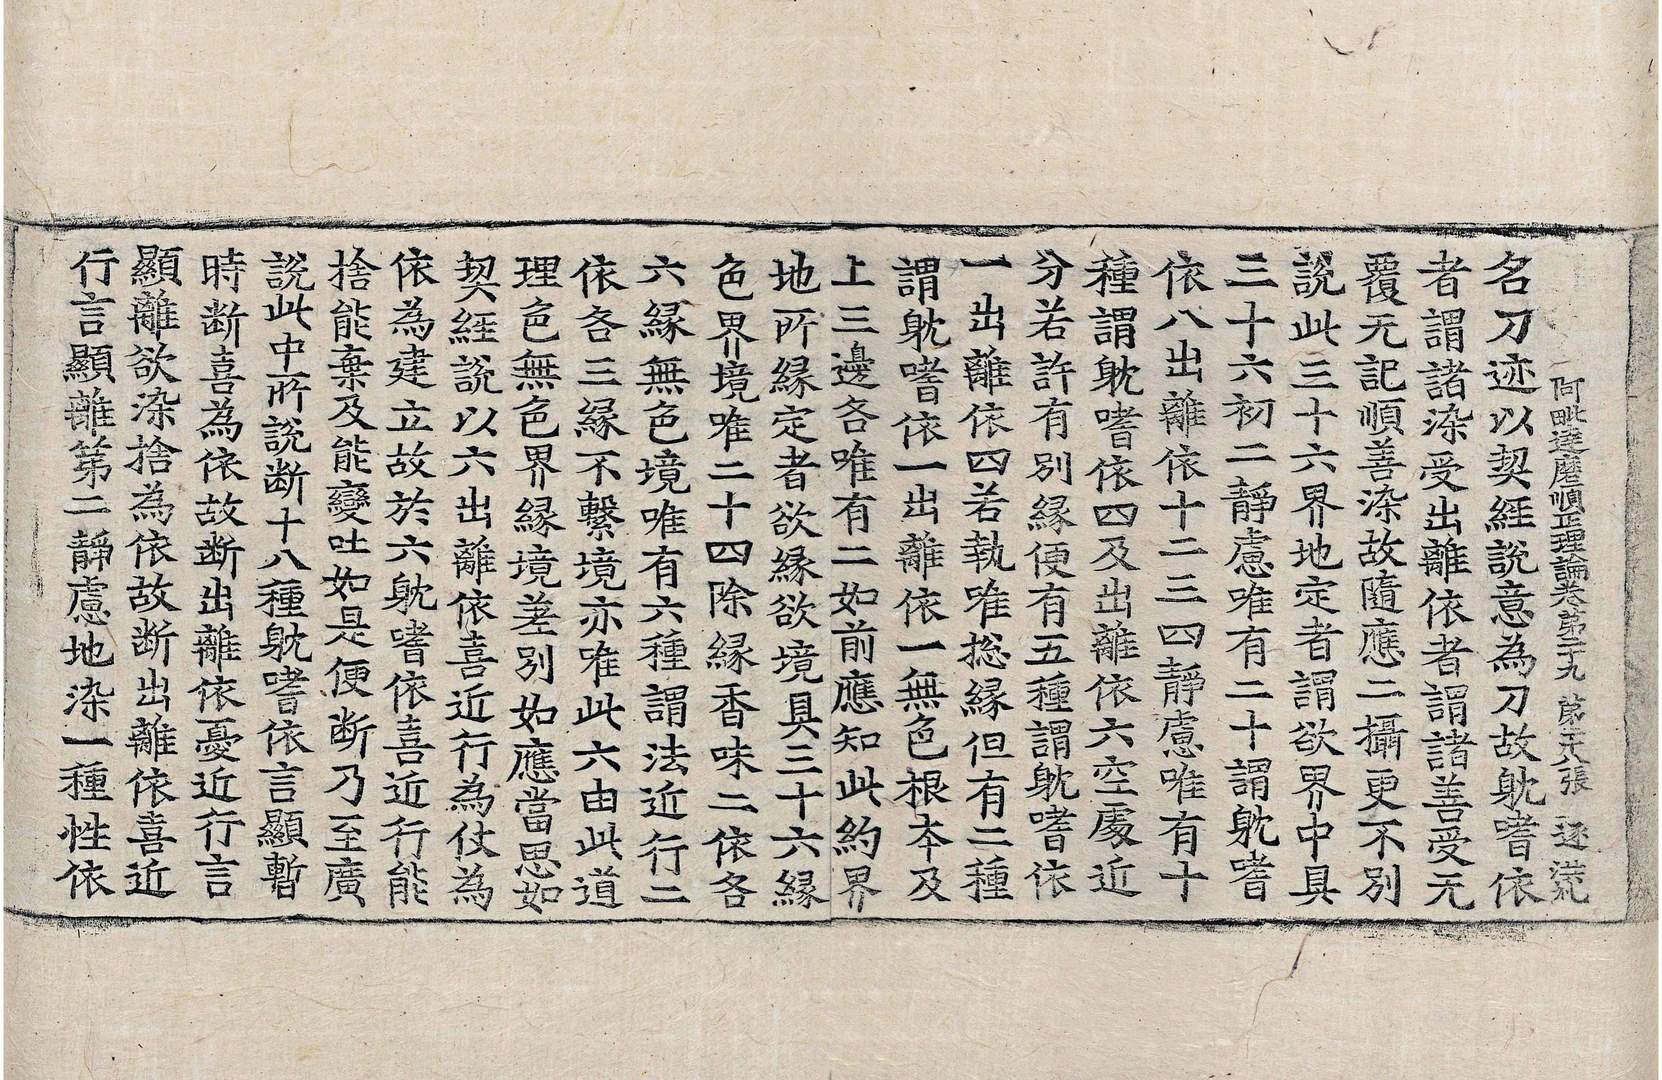 阿毗達磨順正理論卷第二十九 第二十八張 逐
名刀迹以契經說意為刀故躭嗜依
者謂諸染受出離依者謂諸善受无
覆无記順善染故隨應二攝更不別
說此三十六界地定者謂欲界中具
三十六初二靜慮唯有二十謂躭嗜
依八出離依十二三四靜慮唯有十
種謂躭嗜依四及出離依六空處近
分若許有別緣便有五種謂躭嗜依
一出離依四若執唯揔緣但有二種
謂躭嗜依一出離依一無色根本及
上三邊各唯有二如前應知此約界
地所緣定者欲緣欲境具三十六緣
色界境唯二十四除緣香味二依各
六緣無色境唯有六種謂法近行二
依各三緣不繫境亦唯此六由此道
理色無色界緣境差別如應當思如
契經說以六出離依喜近行為仗為
依為建立故於六躭嗜依喜近行能
捨能棄及能變吐如是便断乃至廣
說此中所說断十八種躭嗜依言顯暫
時断喜為依故断出離依憂近行言
顯離欲染捨為依故断出離依喜近
行言顯離第二靜慮地染一種性依